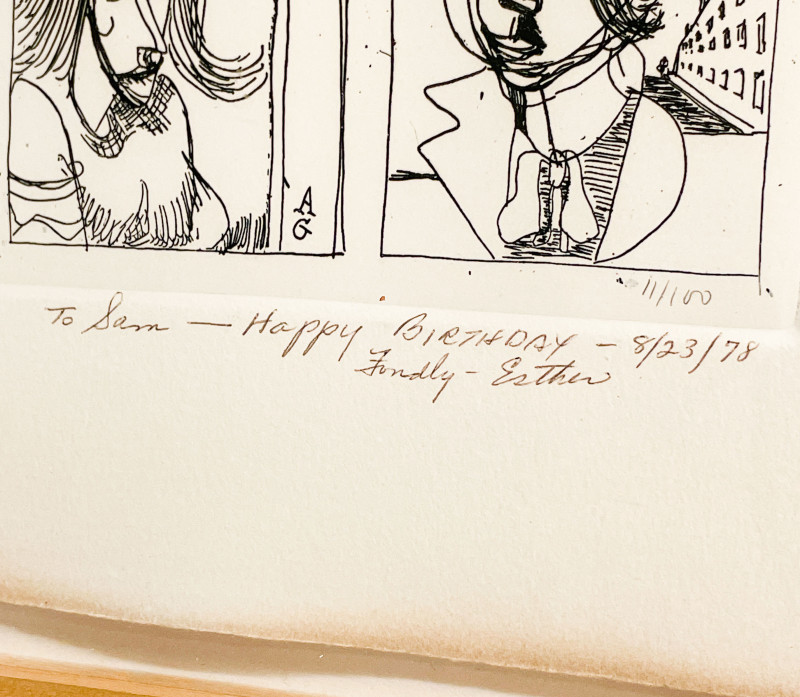 A
G
11/100
To Sam — Happy BIRTHDAY – 8/23/78
Fondly - Esther